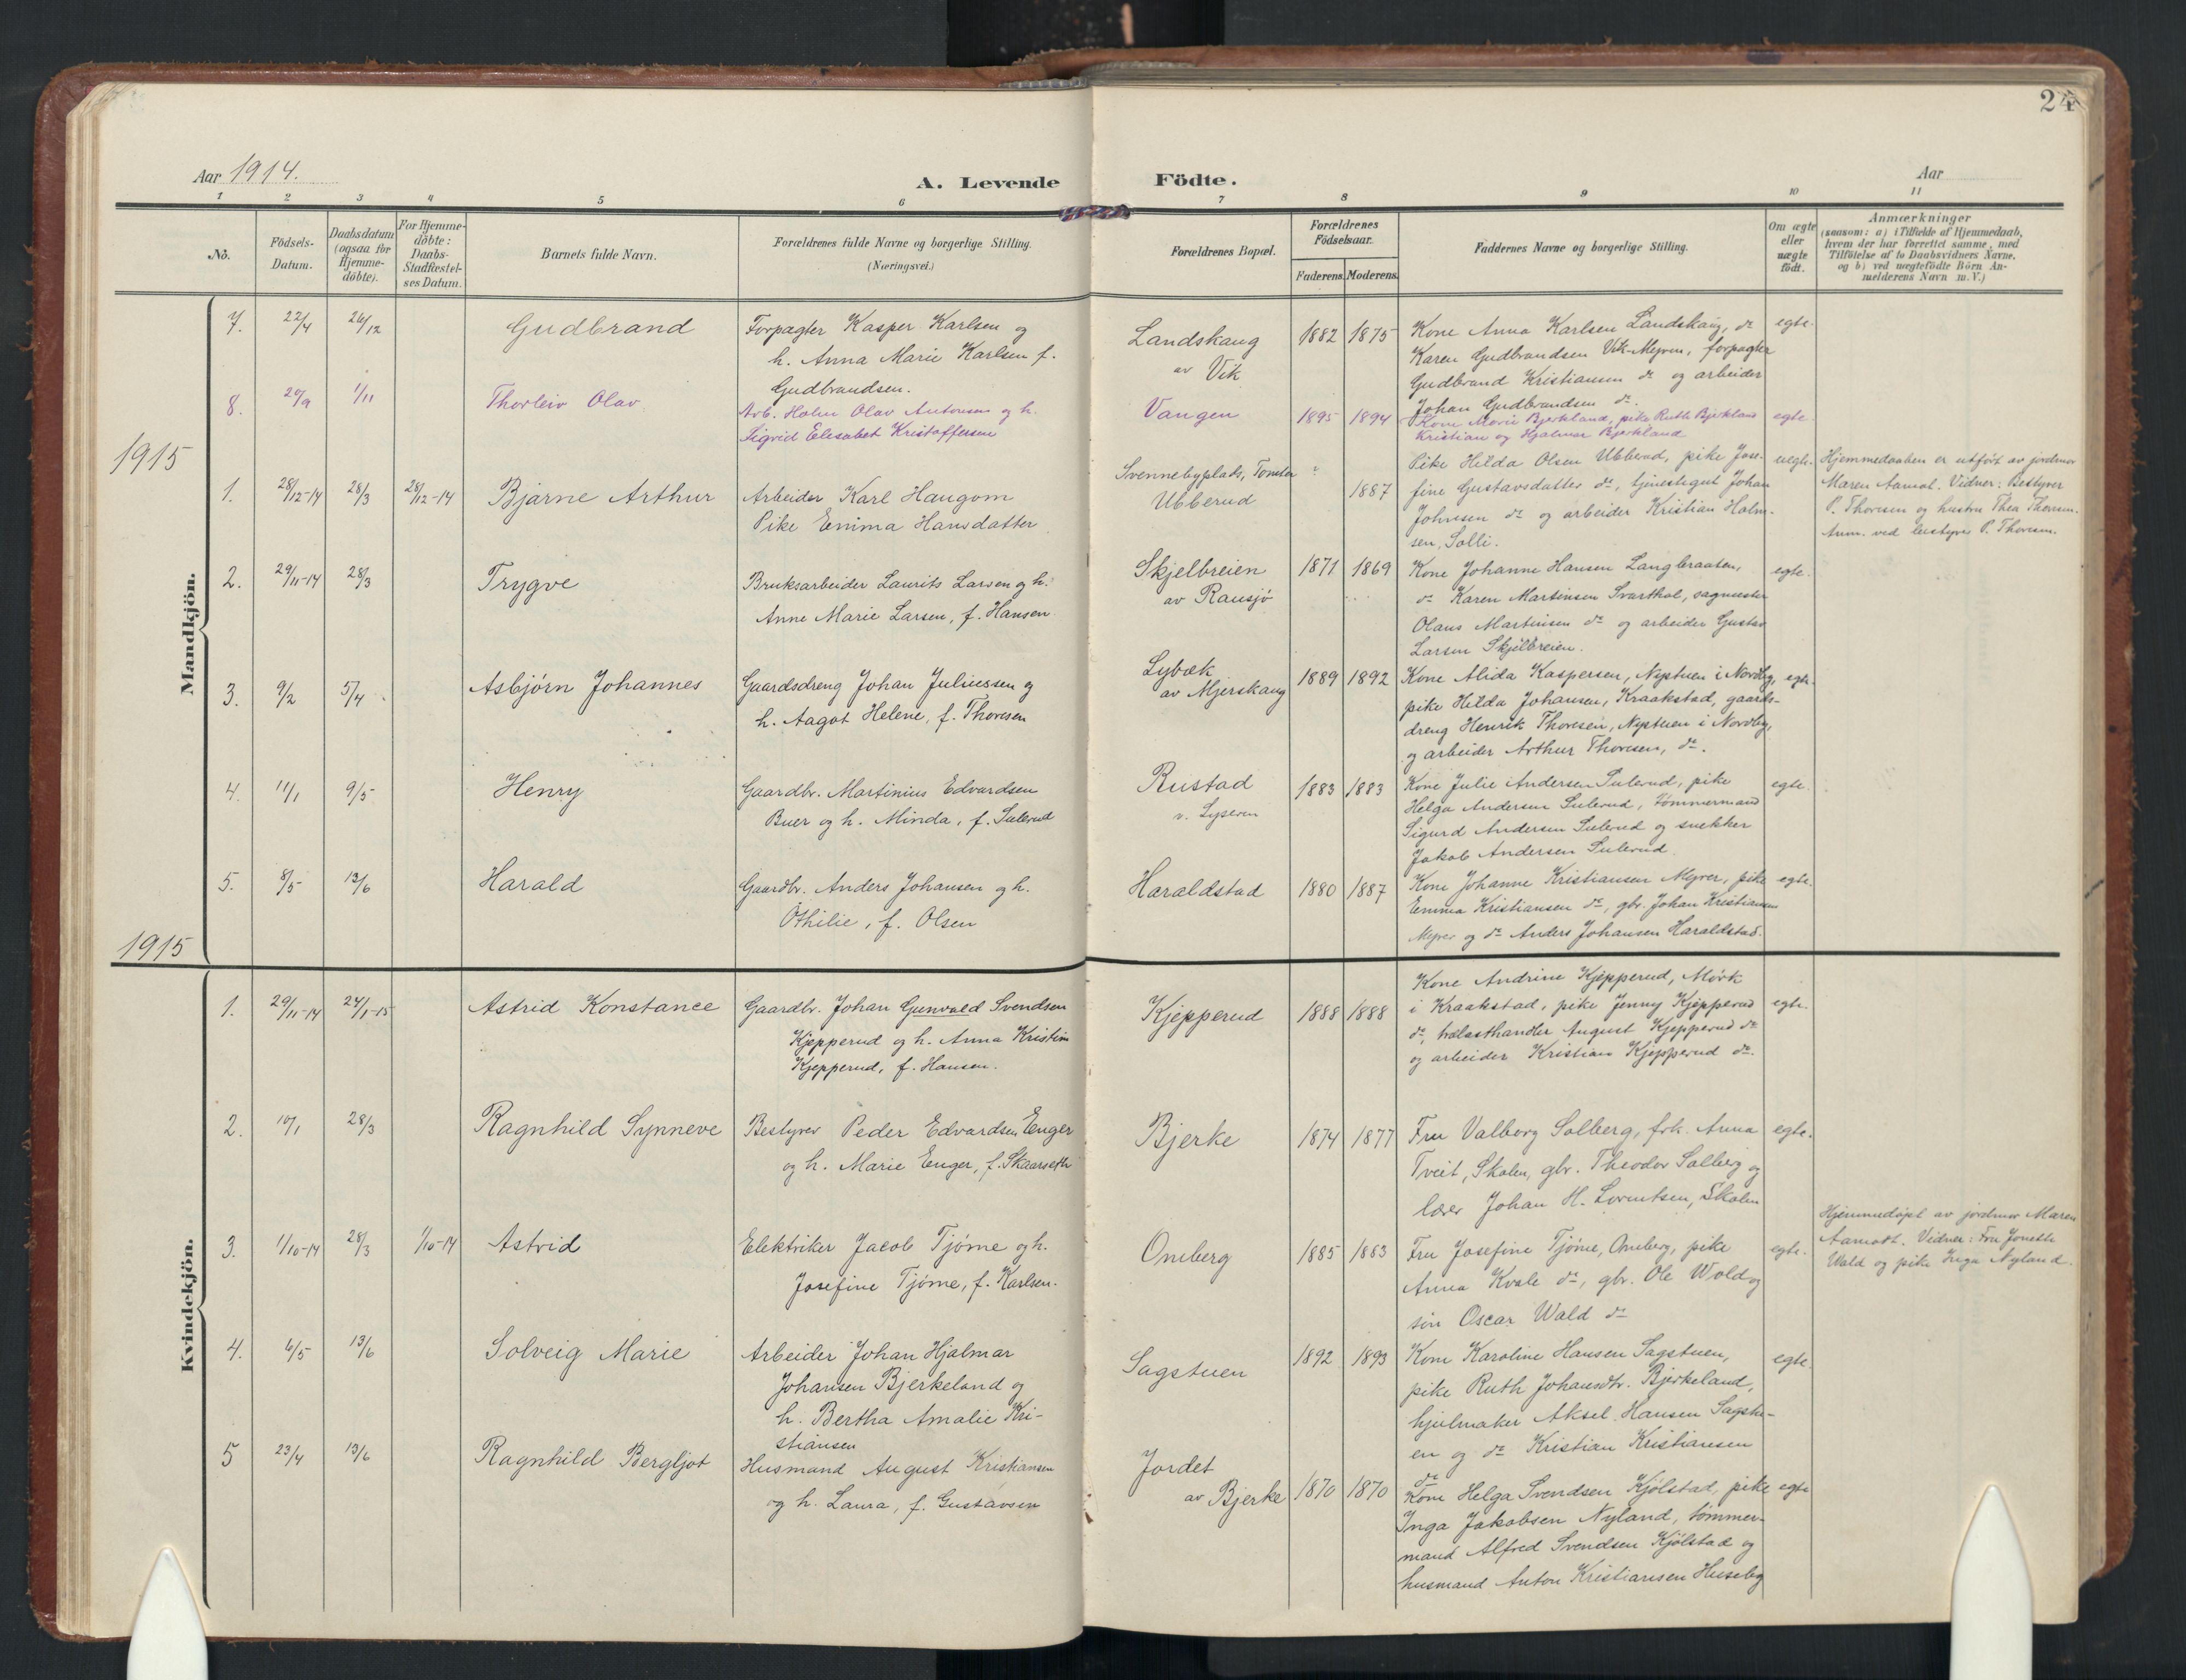 24
Aar 1914.
A. Levende Födte.
Aar
1 2 3 4 5 6 7 8 9 10 11
No.
Födsels-
Datum.
Daabsdatum
(ogsaa for
Hjemme-
döbte).
For Hjemme-
döbte:
Daabs-
Stadfæstel-
ses Datum.
Barnets fulde Navn.
Forældrenes fulde Navne og borgerlige Stilling.
(Næringsvei.)
Forældrenes Bopæl.
Forældrenes
Födselsaar.
Faderens. Moderens.
Faddernes Navne og borgerlige Stilling.
Om ægte
eller
uægte
födt.
Anmærkninger
(saasom: a) i Tilfælde af Hjemmedaab,
hvem der har forrettet samme, med
Tilföielse af to Daabsvidners Navne,
og b) ved uægtefödte Börn An-
melderens Navn m.V.)
Mandkjön.
7. 22/4 26/12 Gudbrand
Forpagter Kasper Karlsen og
h. Anna Marie Karlsen f.
Gudbrandsen.
Landskaug
av Vik
1882 1875
Kone Anna Karlsen Landskaug, do
Karen Gudbrandsen Vik-Myren, forpagter
Gudbrand Kristiansen do og arbeider
Johan Gudbrandsen do.
egte.
8. 20/9 1/11 Thorleiv Olav
Arb. Holm Olav Antonsen og h.
Sigrid Elisabet Kristoffersen
Vangen
1895 1894
Kone Marie Bjerkland, pike Ruth Bjerkland
Kristian og Hjalmar Bjerkland
egte.
1915
1. 28/12-14 28/3 28/12-14 Bjarne Arthur
Arbeider Karl Haugom
Pike Emma Hansdatter
Svennebyplads, Tomter
Ubberud
1887
Pike Hilda Olsen Ubberud, pike Jose-
fine Gustavsdatter do, tjenestegut Johan
Johnsen do og arbeider Kristian Holm-
sen, Solli.
uegte.
Hjemmedaaben er utført av jordmor
Maren Aamot. Vidner: Bestyrer
P. Thoresen og hustru Thea Thoresen.
Anm. ved bestyrer P. Thoresen.
2. 29/11-14 28/3 Trygve
Bruksarbeider Laurits Larsen og h.
Anne Marie Larsen, f. Hansen
Skjelbreien
av Rausjø
1871 1869
Kone Johanne Hansen Langbraaten,
do Karen Martinsen Svarthol, sagmester
Olaus Martinsen do og arbeider Gustav
Larsen Skjelbreien.
egte.
3. 9/2 5/4 Asbjörn Johannes
Gaardsdreng Johan Juliussen og
h. Aagot Helene, f. Thoresen
Lybæk
av Mjerskaug
1889 1892
Kone Alida Kaspersen, Nystuen i Nordby,
pike Hilda Johansen, Kraakstad, gaards-
dreng Henrik Thoresen, Nystuen i Nordby,
og arbeider Arthur Thoresen, do.
egte.
4. 11/1 9/5 Henry
Gaardbr. Martinius Edvardsen
Buer og h. Minda, f. Sulerud
Rustad
v. Lyseren
1883 1883
Kone Julie Andersen Sulerud, pike
Helga Andersen Sulerud, tømmermand
Sigurd Andersen Sulerud og snekker
Jakob Andersen Sulerud
egte.
5. 8/5 13/6 Harald
Gaardbr. Anders Johansen og h.
Othilie, f. Olsen
Haraldstad
1880 1887
Kone Johanne Kristiansen Myrer, pike
Emma Kristiansen do, gbr. Johan Kristiansen
Myrer og do Anders Johansen Haraldstad.
egte.
1915
Kvindekjön.
1. 29/11-14 24/1-15 Astrid Konstance
Gaardbr. Johan Gunvald Svendsen
Kjepperud og h. Anna Kristine
Kjepperud, f. Hansen.
Kjepperud
1888 1888
Kone Andrine Kjepperud, Mörk
i Kraakstad, pike Jenny Kjepperud
do, trælasthandler August Kjepperud do
og arbeider Kristian Kjepperud do.
egte.
2. 10/1 28/3 Ragnhild Synneve
Bestyrer Peder Edvardsen Enger
og h. Marie Enger, f. Skaarseth
Bjerke
1874 1877
Fru Valborg Solberg, frk. Anna
Tveit, Skolen, gbr. Theodor Solberg og
lærer Johan H. Lorentsen, Skolen
egte.
3. 1/10-14 28/3 1/10-14 Astrid
Elektriker Jacob Tjöme og h.
Josefine Tjöme, f. Karlsen.
Omberg
1885 1883
Fru Josefine Tjöme, Omberg, pike
Anna Kvale do, gbr. Ole Wold og
sön Oscar Wald do
egte.
Hjemmedöpt av jordmor Maren
Aamodt. Vidner: Fru Jonette
Wald og pike Inga Nyland.
4. 6/5 13/6 Solveig Marie
Arbeider Johan Hjalmar
Johansen Bjerkeland og
h. Bertha Amalie Kri-
stiansen
Sagstuen
1892 1893
Kone Karoline Hansen Sagstuen,
pike Ruth Johansdtr. Bjerkeland,
hjulmaker Aksel Hansen Sagstu-
en og do Kristian Kristiansen
do
egte.
5 23/4 13/6 Ragnhild Bergljot
Husmand August Kristiansen
og h. Laura, f. Gustavsen
Jordet
av Bjerke
1870 1870
Kone Helga Svendsen Kjölstad, pike
Inga Jakobsen Nyland, tömmer-
mand Alfred Svendsen Kjölstad og
husmand Anton Kristiansen Huseby
egte